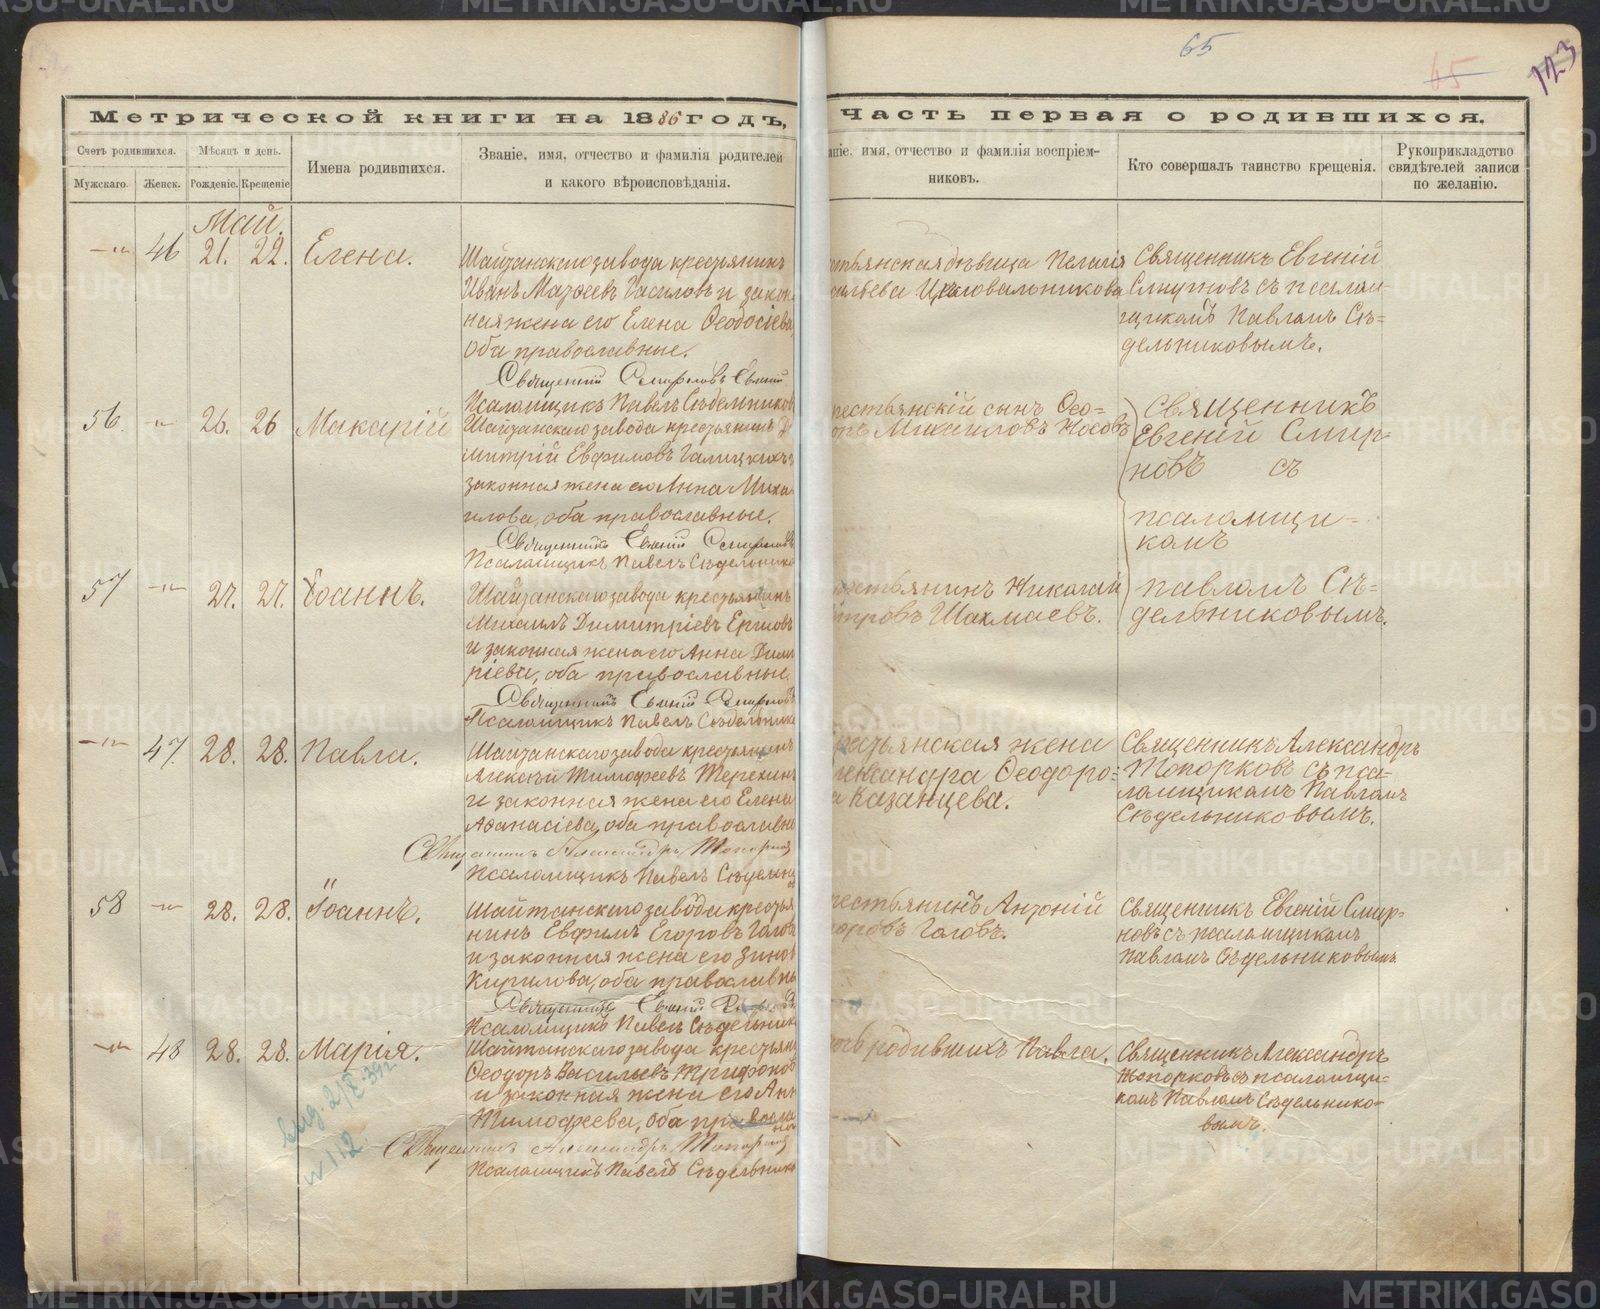 65
65
123
Метрической книги на 1886 годъ,
Часть первая о родившихся.
Счетъ родившихся.
Мѣсяцъ и день.
Имена родившихся.
Званіе, имя, отчество и фамилія родителей
и какого вѣроисповѣданія.
Мужскаго.
Женск.
Рожденіе.
Крещеніе
аніе, имя, отчество и фамилія воспріем-
никовъ.
Кто совершалъ таинство крещенія.
Рукоприкладство
свидѣтелей записи
по желанію.
Май.
46 21. 22. Елена.
Шайтанскаго завода крестьянинъ
Иванъ Матѳеевъ и закон
ная жена его Елена Ѳеодосіева
оба православные.
Священникъ Смирновъ Евгеній
Псаломщикъ Павелъ Сѣдельников
стьянская дѣвица Пелагія
сильева
Священникъ Евгеній
Смирновъ съ псалом-
щикомъ Павломъ Сѣ=
дельниковымъ.
56. 26. 26 Макарій
Шайтанскаго завода крестьянинъ Д
митрій Евфимовъ Галицкихъ и
законная жена его Анна Миха
илова, оба православные.
Священникъ Евгеній Смирновъ
Псаломщикъ Павелъ Сѣдельнико
рестьянскій сынъ Ѳео=
оръ Михаиловъ Носовъ
Священникъ
Евгеній Смир-
новъ съ
псаломщи=
комъ
Павломъ Сѣ=
дельниковымъ.
57 27. 27. Іоаннъ.
Шайтанскаго завода крестьянинъ
Михаилъ Димитріевъ Ершовъ
и законная жена его Анна Дими
ріева, оба православные.
Священникъ Евгеній Смирновъ
Псаломщикъ Павелъ Сѣдельнико
рестьянинъ Николай
етровъ Шахмаевъ.
47. 28. 28. Павла.
Шайтанскаго завода крестьянинъ
Алексѣй Тимофеевъ Терехинъ
и законная жена его Елена
Аѳанасіева, оба православны
Священникъ Александръ Топорков
Псаломщикъ Павелъ Сѣдельни
рестьянская жена
лександра Ѳеодоро=
а Казанцева.
Священникъ Александръ
Топорковъ съ пса-
ломщикомъ Павломъ
Сѣдельниковымъ.
58 28. 28. Іоаннъ.
Шайтанскаго завода крестья
нинъ Евфимъ Егоровъ Гагов
и законная жена его Зинов
Кирилова, оба православны
Священникъ Евгеній Смирновъ
Псаломщикъ Павелъ Сѣдельник
рестьянинъ Антоній
горовъ Гаговъ.
Священникъ Евгеній Смир-
новъ съ псаломщикомъ
Павломъ Сѣдельниковымъ
48 28. 28. Марія.
Шайтанскаго завода крестьяни
Ѳеодоръ Васильевъ Трифонов
и законная жена его Анн
Тимофеева, оба православ
ные
Священникъ Александръ Топорков
Псаломщикъ Павелъ Сѣдельник
родившихъ Павла.
Священникъ Александръ
Топорковъ съ псаломщи-
комъ Павломъ Сѣдельнико-
вымъ.
№ 112
METRIKI.GASO-URAL.RU